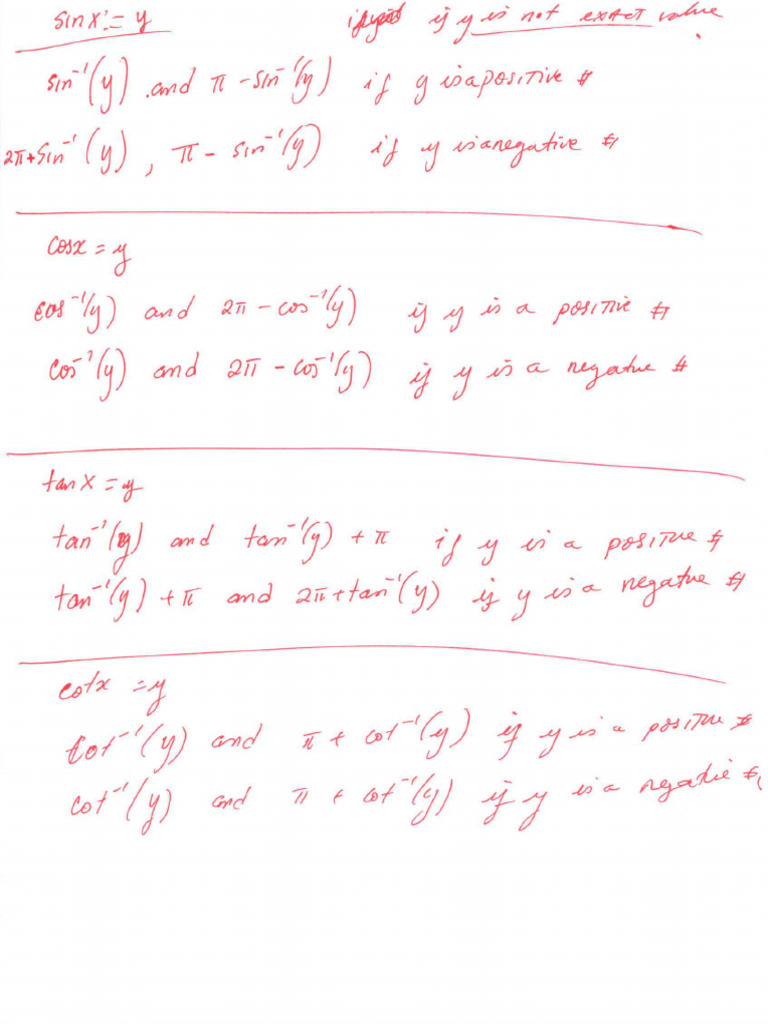 sin x = y if y is not exact value.
sin⁻¹(y) and π - sin⁻¹(y) if y is a positive #
2π + sin⁻¹(y), π - sin⁻¹(y) if y is a negative #
cos x = y
cos⁻¹(y) and 2π - cos⁻¹(y) if y is a positive #
cos⁻¹(y) and 2π - cos⁻¹(y) if y is a negative #
tan x = y
tan⁻¹(y) and tan⁻¹(y) + π if y is a positive #
tan⁻¹(y) + π and 2π + tan⁻¹(y) if y is a negative #
cot x = y
cot⁻¹(y) and π + cot⁻¹(y) if y is a positive #
cot⁻¹(y) and π + cot⁻¹(y) if y is a negative #